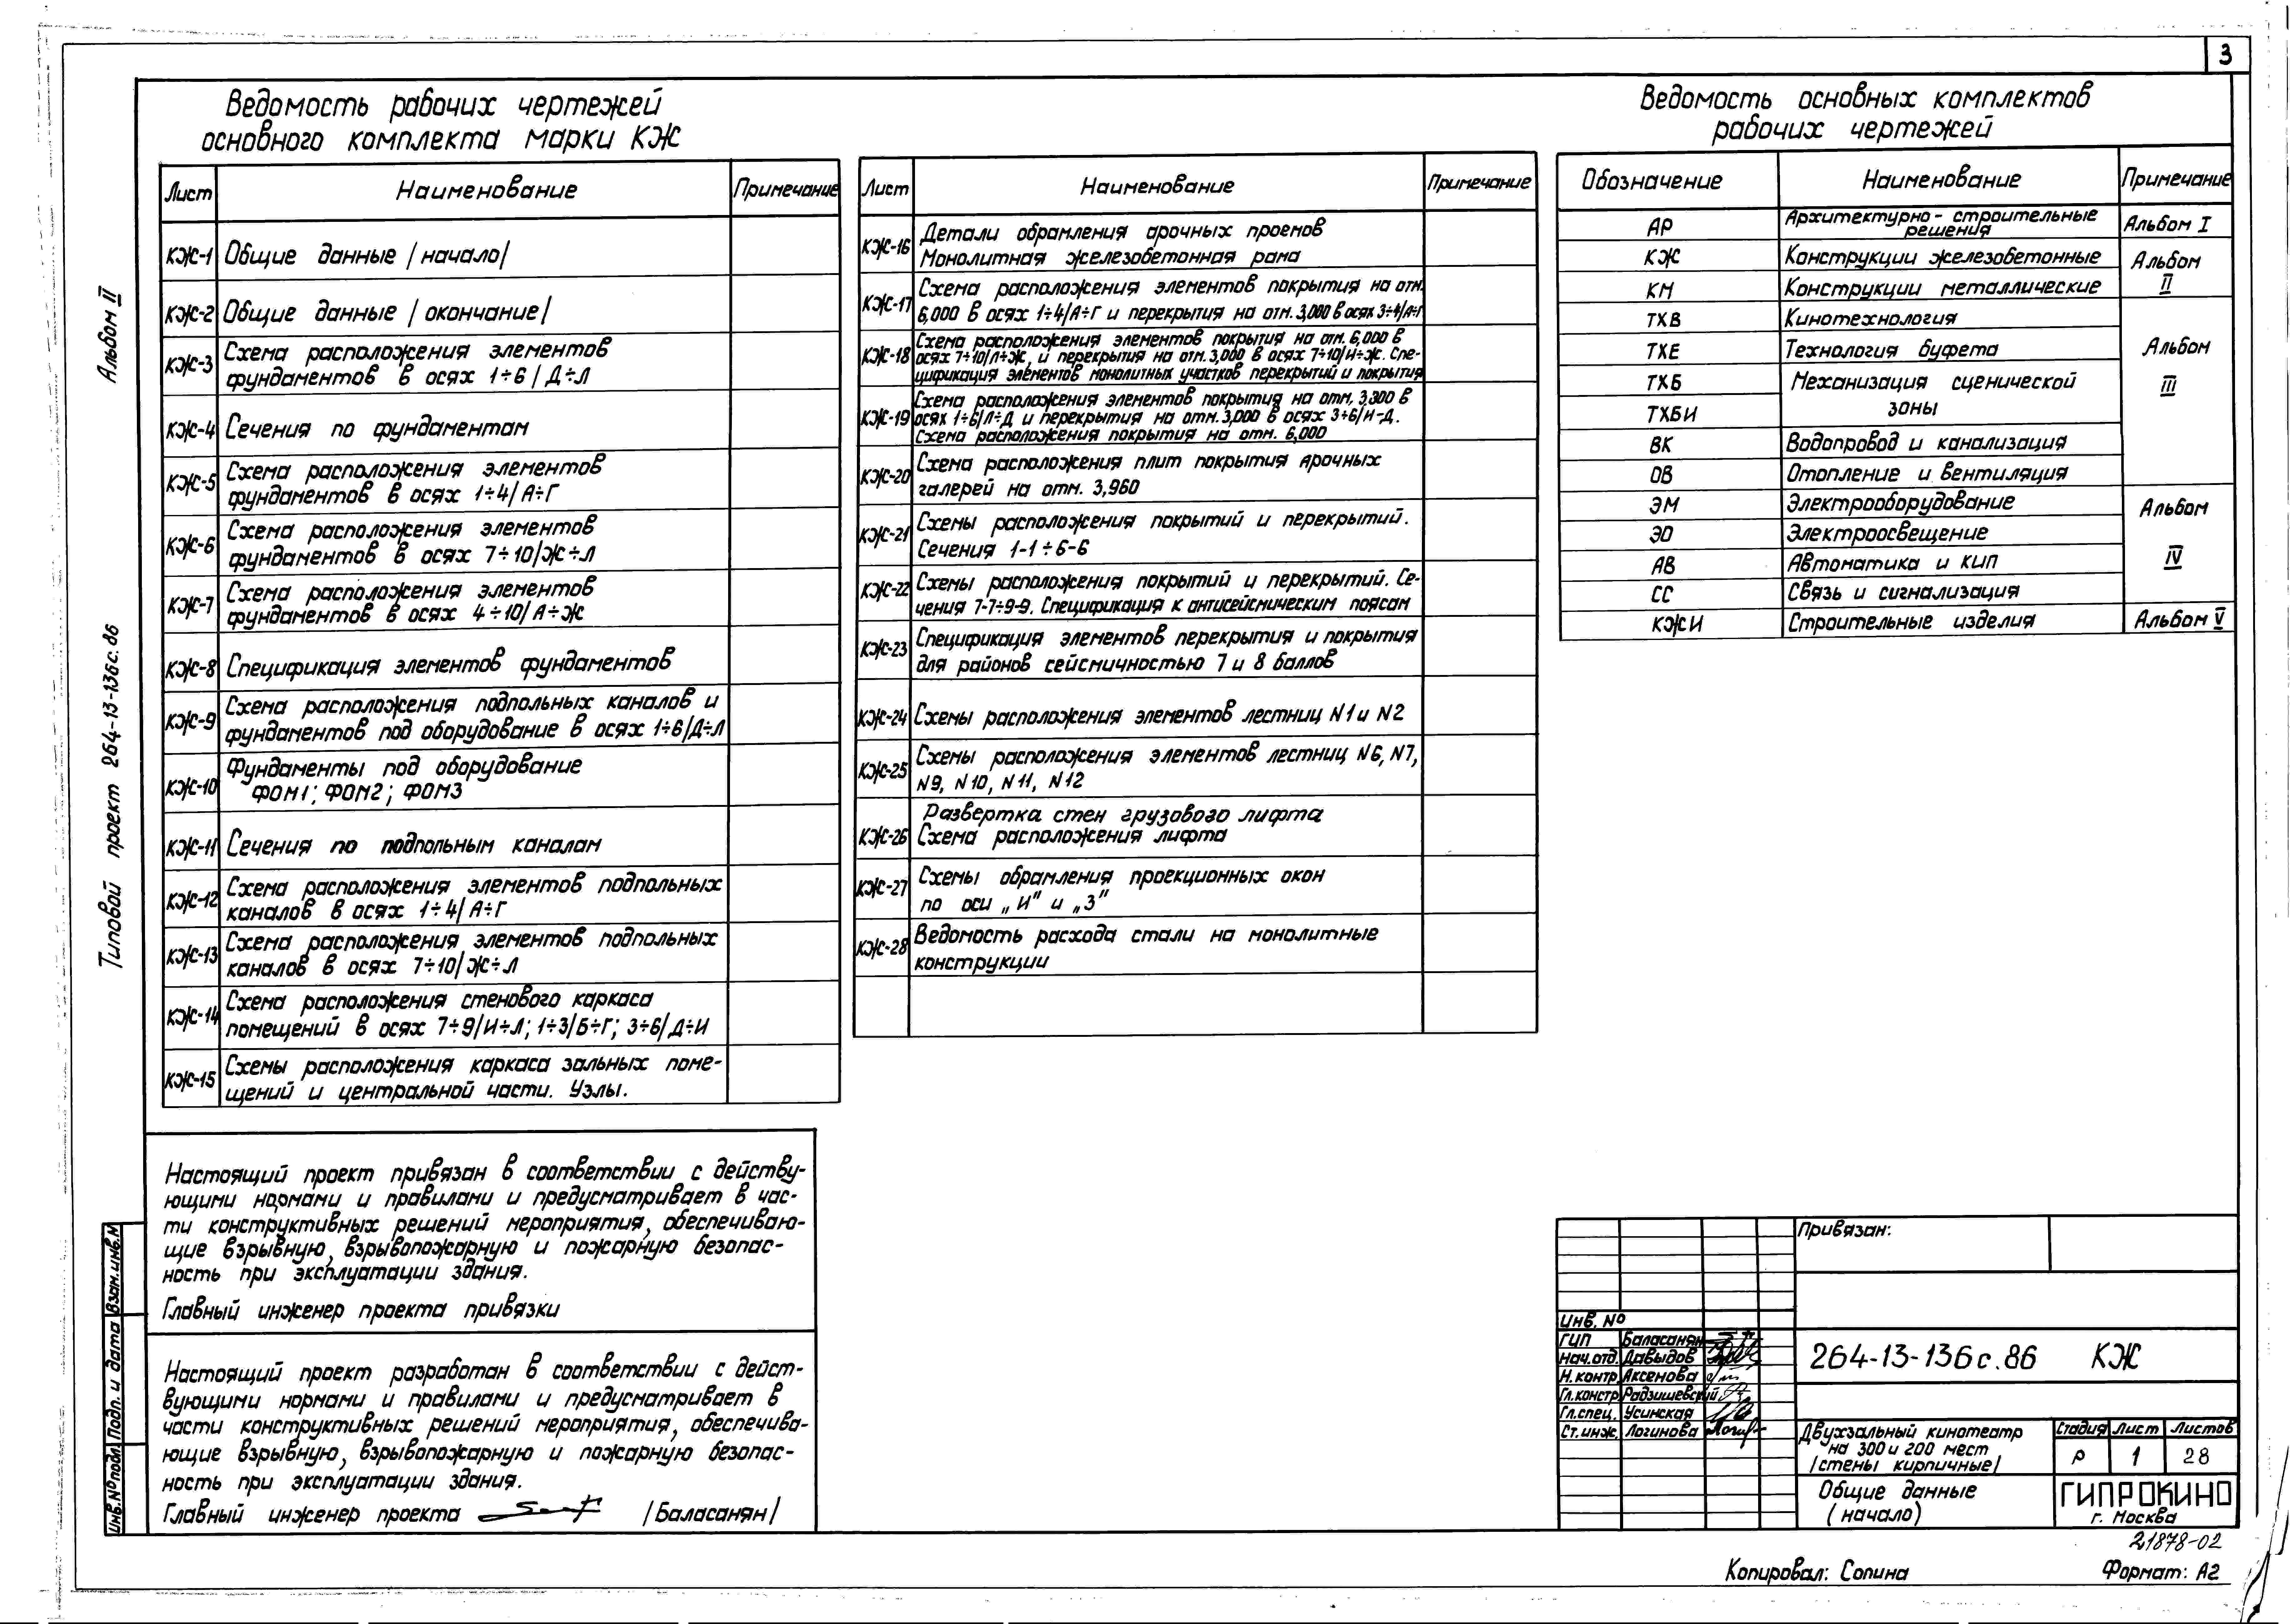 3
Альбом II
Типовой проект 264-13-136с.86
Взам.инв.N
Подп. и дата
Инв.Nº подл.
Ведомость рабочих чертежей
основного комплекта марки КЖ
Лист Наименование Примечание
КЖ-1 Общие данные /начало/
КЖ-2 Общие данные /окончание/
КЖ-3 Схема расположения элементов
фундаментов в осях 1÷6/Д÷Л
КЖ-4 Сечения по фундаментам
КЖ-5 Схема расположения элементов
фундаментов в осях 1÷4/А÷Г
КЖ-6 Схема расположения элементов
фундаментов в осях 7÷10/Ж÷Л
КЖ-7 Схема расположения элементов
фундаментов в осях 4÷10/А÷Ж
КЖ-8 Спецификация элементов фундаментов
КЖ-9 Схема расположения подпольных каналов и
фундаментов под оборудование в осях 1÷6/Д÷Л
КЖ-10 Фундаменты под оборудование
ФОМ1; ФОМ2; ФОМ3
КЖ-11 Сечения по подпольным каналам
КЖ-12 Схема расположения элементов подпольных
каналов в осях 1÷4/А÷Г
КЖ-13 Схема расположения элементов подпольных
каналов в осях 7÷10/Ж÷Л
КЖ-14 Схема расположения стенового каркаса
помещений в осях 7÷9/И÷Л; 1÷3/Б÷Г; 3÷6/Д÷И
КЖ-15 Схемы расположения каркаса зальных поме-
щений и центральной части. Узлы.
Лист Наименование Примечание
КЖ-16 Детали обрамления арочных проемов
Монолитная железобетонная рама
КЖ-17 Схема расположения элементов покрытия на отм.
6,000 в осях 1÷4/А÷Г и перекрытия на отм. 3,000 в осях 3÷4/А÷Г
КЖ-18 Схема расположения элементов покрытия на отм. 6,000 в
осях 7÷10/Л÷Ж, и перекрытия на отм. 3,000 в осях 7÷10/И÷Ж. Спе-
цификация элементов монолитных участков перекрытий и покрытия
КЖ-19 Схема расположения элементов покрытия на отм. 3,300 в
осях 1÷6/Л÷Д и перекрытия на отм. 3,000 в осях 3÷6/И-Д.
Схема расположения покрытия на отм. 6,000
КЖ-20 Схема расположения плит покрытия арочных
галерей на отм. 3,960
КЖ-21 Схемы расположения покрытий и перекрытий.
Сечения 1-1÷6-6
КЖ-22 Схемы расположения покрытий и перекрытий. Се-
чения 7-7÷9-9. Спецификация к антисейсмическим поясам
КЖ-23 Спецификация элементов перекрытия и покрытия
для районов сейсмичностью 7 и 8 баллов
КЖ-24 Схемы расположения элементов лестниц N1 и N2
КЖ-25 Схемы расположения элементов лестниц N6, N7,
N9, N10, N11, N12
КЖ-26 Развертка стен грузового лифта
Схема расположения лифта
КЖ-27 Схемы обрамления проекционных окон
по оси „И" и „З"
КЖ-28 Ведомость расхода стали на монолитные
конструкции
Ведомость основных комплектов
рабочих чертежей
Обозначение Наименование Примечание
АР Архитектурно-строительные
решения Альбом I
КЖ Конструкции железобетонные Альбом
II
КМ Конструкции металлические
ТХВ Кинотехнология
ТХЕ Технология буфета Альбом
III
ТХБ Механизация сценической
ТХБИ зоны
ВК Водопровод и канализация
ОВ Отопление и вентиляция
ЭМ Электрооборудование Альбом
ЭО Электроосвещение
АВ Автоматика и КИП IV
СС Связь и сигнализация
КЖИ Строительные изделия Альбом V
Настоящий проект привязан в соответствии с действу-
ющими нормами и правилами и предусматривает в час-
ти конструктивных решений мероприятия, обеспечиваю-
щие взрывную, взрывопожарную и пожарную безопас-
ность при эксплуатации здания.
Главный инженер проекта привязки
Настоящий проект разработан в соответствии с дейст-
вующими нормами и правилами и предусматривает в
части конструктивных решений мероприятия, обеспечива-
ющие взрывную, взрывопожарную и пожарную безопас-
ность при эксплуатации здания.
Главный инженер проекта /Баласанян/
Привязан:
Инв. Nº
ГИП Баласанян
Нач.отд. Давыдов
Н.контр. Аксенова
Гл.констр. Радзишевский
Гл.спец. Усинская
Ст.инж. Логинова
264-13-136с.86 КЖ
Двухзальный кинотеатр
на 300 и 200 мест
/стены кирпичные/
Стадия Лист Листов
Р 1 28
Общие данные
(начало)
ГИПРОКИНО
г. Москва
21878-02
Копировал: Сопина
Формат: А2